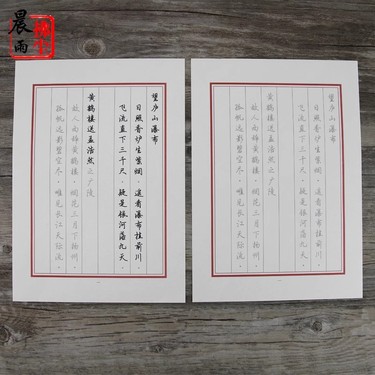 晨雨
望庐山瀑布
日照香炉生紫烟。遥看瀑布挂前川。
飞流直下三千尺。疑是银河落九天。
黄鹤楼送孟浩然之广陵
故人西辞黄鹤楼。烟花三月下扬州。
孤帆远影碧空尽。唯见长江天际流。
望庐山瀑布
日照香炉生紫烟。遥看瀑布挂前川。
飞流直下三千尺。疑是银河落九天。
黄鹤楼送孟浩然之广陵
故人西辞黄鹤楼。烟花三月下扬州。
孤帆远影碧空尽。唯见长江天际流。